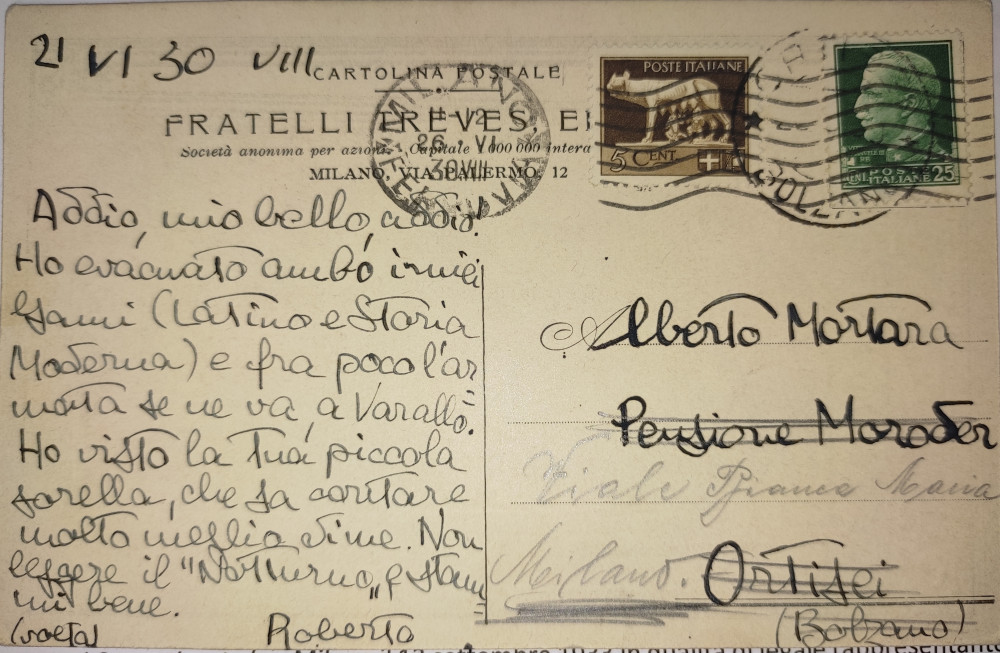 21 VI 30 VIII
CARTOLINA POSTALE
FRATELLI TREVES, E
Società anonima per azioni. Capitale 000 000 intera
MILANO, VIA PALERMO, 12
MILANO
26 VI
30 VIII
FERROVIA
POSTE ITALIANE
5 CENT.
BOLZANO
POSTE
ITALIANE 25
Addio, mio bello, addio.
Ho evacuato ambo i miei
esami (Latino e Storia
Moderna) e fra poco l'ar
mata se ne va a Varallo.
Ho visto la tua piccola
sorella, che sa contare
molto meglio di me. Non
leggere il "Notturno„ e stam
mi bene.
(volta) Roberto
Alberto Mortara
Pensione Moroder
Viale Bianca Maria
Milano. Ortisei
(Bolzano)